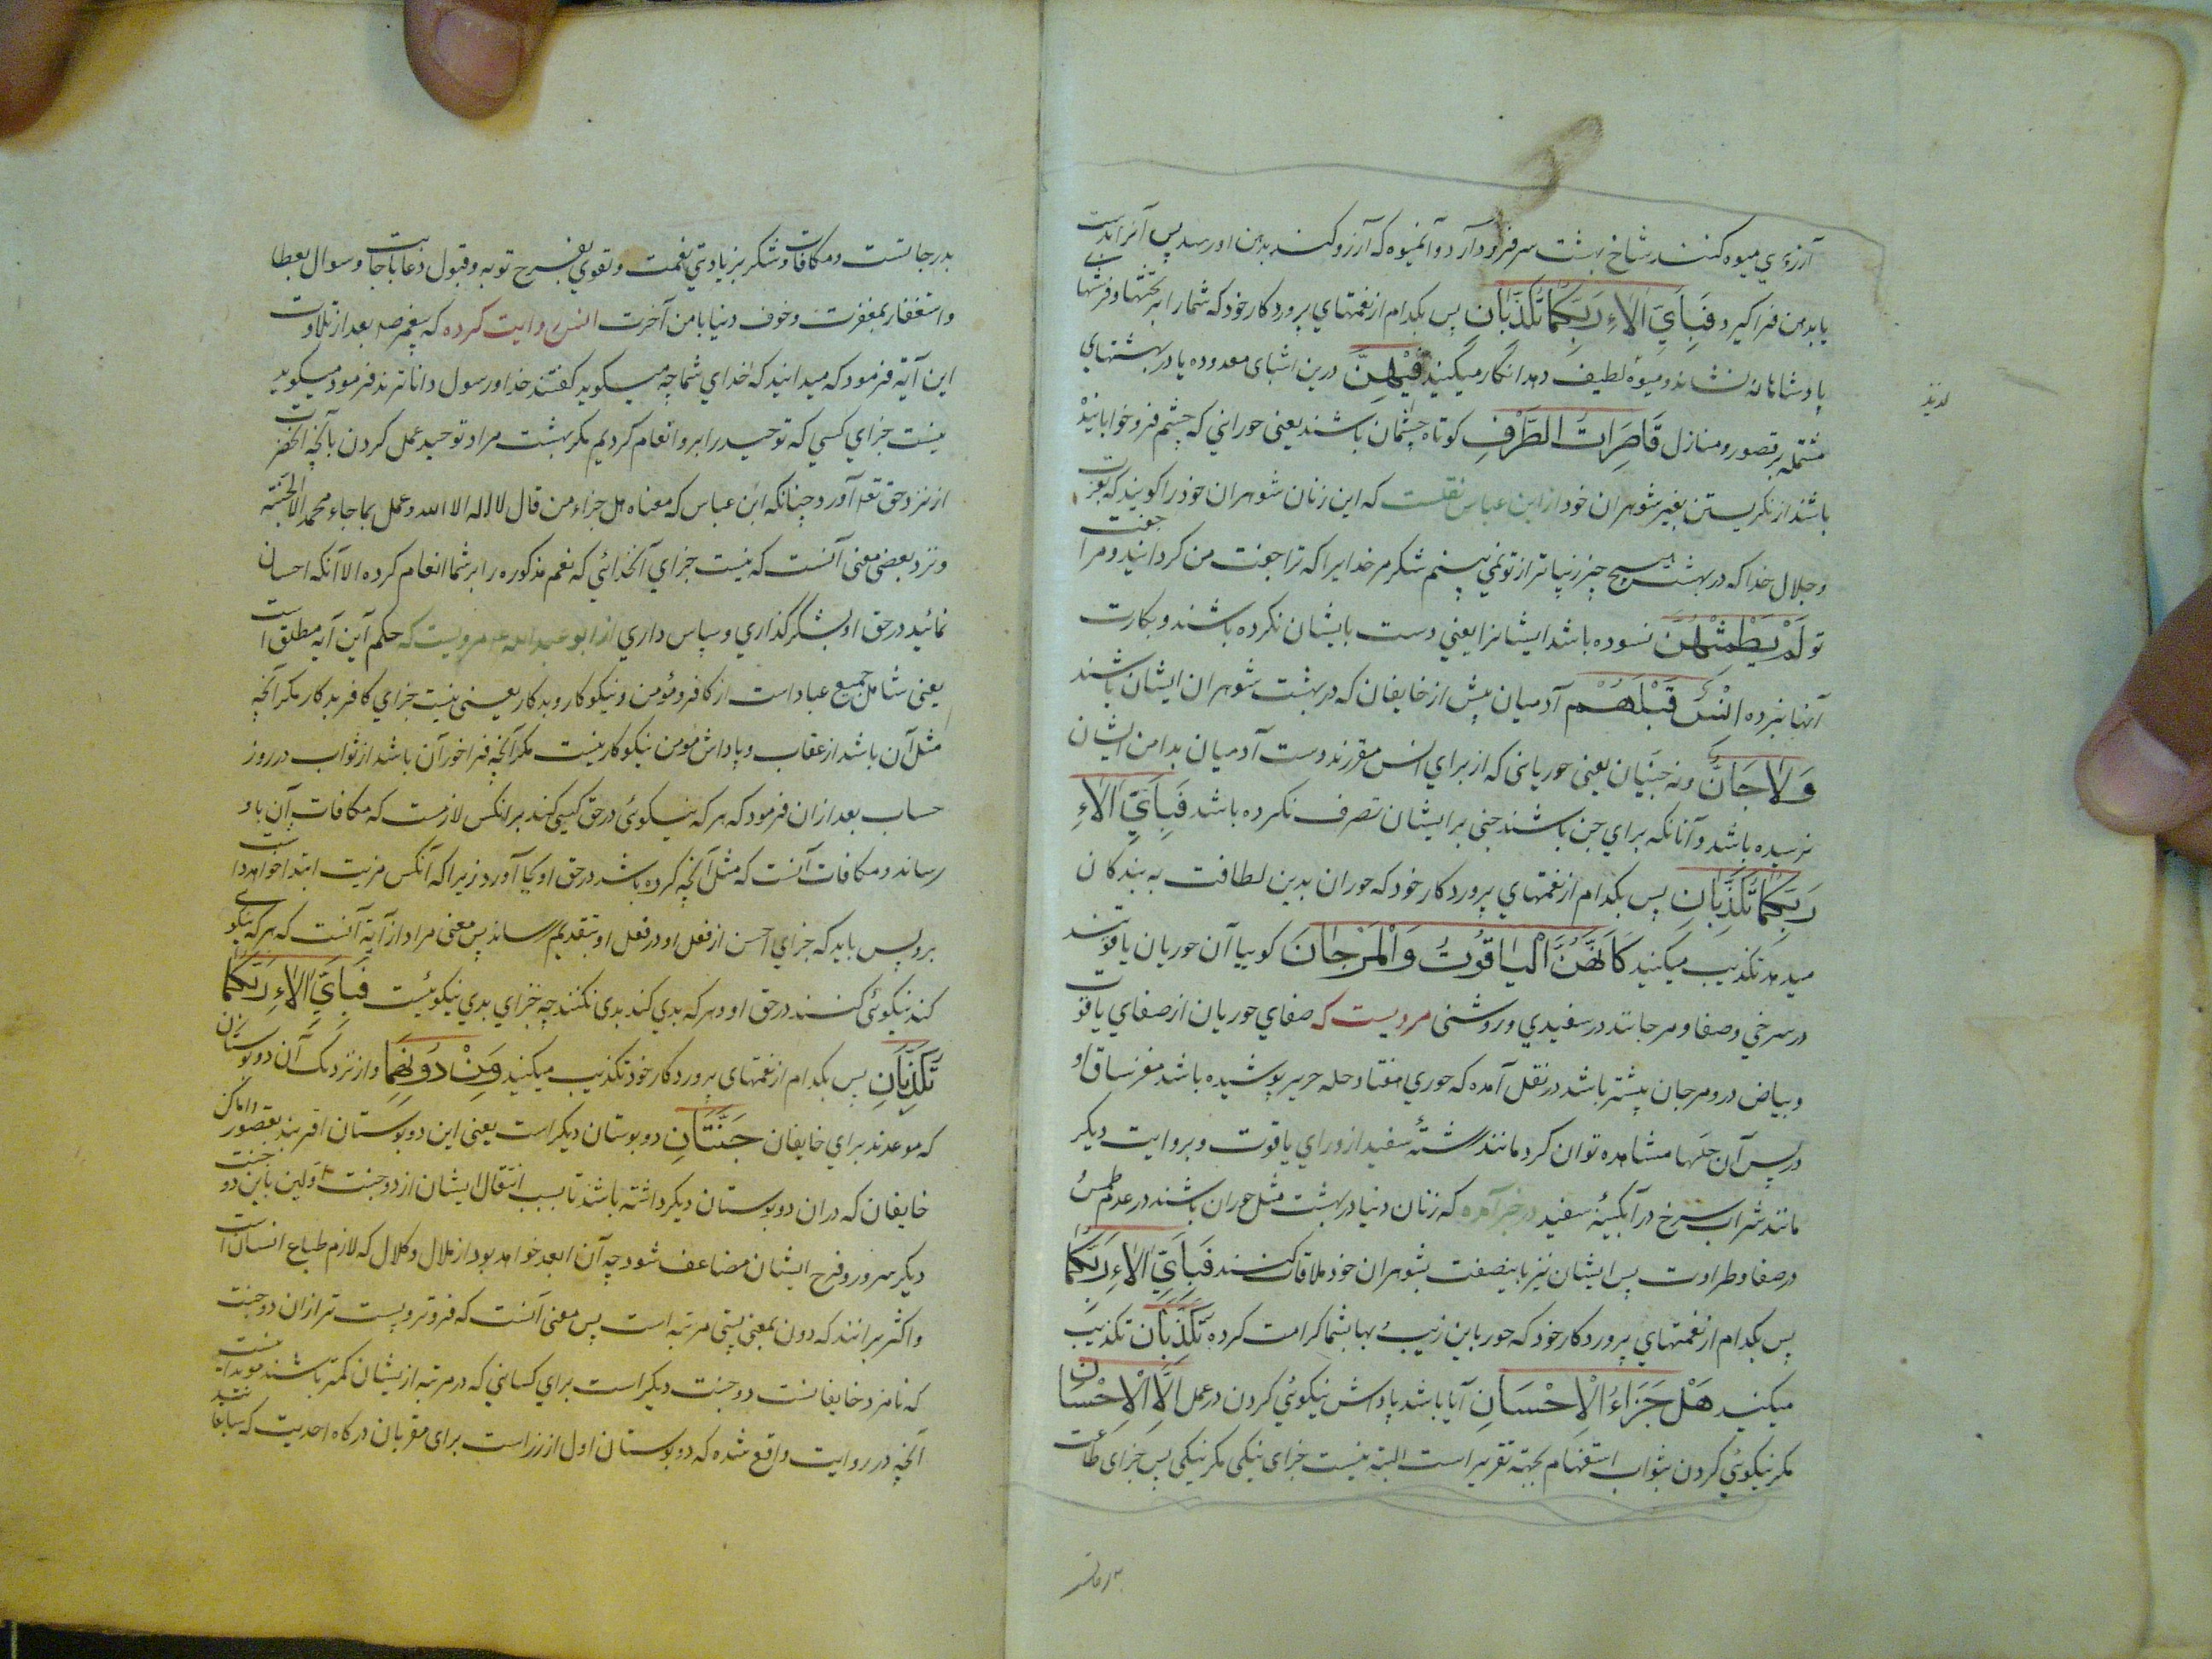 آرزوي ميوه كنند شاخ بهشت سر فرود آرد و آنميوه كه آرزو كند بدهن او رسد پس آنرا بدست
يا بدهن فرا گيرد فَبِأَيِّ الَاءِ رَبِّكُمَا تُكَذِّبَانِ پس بكدام از نعمتهاي پروردگار خود كه شما را بر تختها و فرشهاي
پادشاهانه نشاند و ميوه لطيف دهد انكار ميكنيد فِيْهِنَّ درين اشياى معدوده يا در بهشتهاي
مشتمله بر قصور و منازل قَاصِرَاتُ الطَّرْفِ كوتاه چشمان باشند يعنى حوراني كه چشم فرو خوابانيده
باشند از نگريستن بغير شوهران خود از ابن عباس نقلست كه اين زنان شوهران خود را گويند كه بعزت
و جلال خدا كه در بهشت هيچ چيز زيباتر از تو نمي بينم شكر مر خدايرا كه ترا جفت من گردانيد و مرا جفت
تو لَمْ يَطْمِثْهُنَّ نسوده باشد ايشانرا يعني دست بايشان نكرده باشند و بكارت
آنها نبرده اِنْسٌ قَبْلَهُمْ آدميان پيش از خايفان كه در بهشت شوهران ايشان باشند
وَلَا جَانٌّ و نه جنيان يعنى حورياني كه از براي انس مقررند دست آدميان بدامن ايشان
نرسيده باشد و آنانكه براي جن باشند جنى بر ايشان تصرف نكرده باشد فَبِأَيِّ الَاءِ
رَبِّكُمَا تُكَذِّبَانِ پس بكدام از نعمتهاي پروردگار خود كه حوران بدين لطافت به بندگان
ميدهد تكذيب ميكنيد كَاَنَّهُنَّ الْيَاقُوتُ وَالْمَرْجَانَ گوييا آن حوريان ياقوتند
در سرخي و صفا و مرجانند در سفيدي و روشنى مرويست كه صفاي حوريان از صفاي ياقوت
و بياض در و مرجان بيشتر باشد در نقل آمده كه حوري هفتاد حله حرير پوشيده باشد مغز ساق او
در پس آن حلها مشاهده توان كرد مانند رشتۀ سفيد از وراي ياقوت و بروايت ديگر
مانند شراب سرخ در آبگينۀ سفيد در خبر آمده كه زنان دنيا در بهشت مثل حوران باشند در عدم طمث
در صفا و طراوت پس ايشان نيز باينصفت بشوهران خود ملاقات كنند فَبِأَيِّ الَاءِ رَبِّكُمَا
پس بكدام از نعمتهاي پروردگار خود كه حور باين زيب و بها بشما كرامت كرده تُكَذِّبَانِ تكذيب
ميكنيد هَلْ جَزَاءُ الْاِحْسَانِ آيا باشد پاداش نيكوئي كردن در عمل اِلَّا الْاِحْسَان
مگر نيكوئي كردن بثواب استفهام بجهته تقرير است البته نيست جزاى نيكى مگر نيكي پس جزاى طاعت
بدرجاتست و مكافات شكر بزيادتي نعمت و تقوي بفرح توبه و قبول دعا باجابت و سوال بعطا
و استغفار بمغفرت و خوف دنيا بامن آخرت انس روايت كرده كه پيغمبر ص بعد از تلاوت
اين آية فرمود كه ميدانيد كه خداي شما چه ميگويد گفتند خدا و رسول داناترند فرمود ميگويد
نيست جزاي كسي كه توحيد را برو انعام كرديم مگر بهشت مراد توحيد عمل كردن بآنچه آنحضرت
از نزد حق تعه آورد چنانكه ابن عباس كه معناه هل جزاء من قال لا اله الا الله و عمل بما جاء محمد الا الجنة
و نزد بعضى معنى آنست كه نيست جزاي آنخدائي كه نعم مذكوره را بر شما انعام كرده الا آنكه احسان
نمائيد در حق او بشكرگذاري و سپاس داري از ابو عبد الله عم مرويست كه حكم اين آيه مطلق است
يعنى شامل جميع عباد است از كافر و مؤمن و نيكوكار و بدكار يعنى نيست جزاي كافر بدكار مگر آنچه
مثل آن باشد از عقاب و پاداش مؤمن نيكوكار نيست مگر آنچه فراخور آن باشد از ثواب در روز
حساب بعد ازان فرمود كه هر كه نيكوئى در حق كسي كند بر انكس لازمست كه مكافات آن باو
رساند و مكافات آنست كه مثل آنچه كرده باشد در حق او بجا آورد زيرا كه آنكس مزيت ابتدا خواهد داشت
برو پس بايد كه جزاي احسن از فعل او در فعل او بتقديم رساند پس معنى مراد از آية آنست كه هر كه نيكوئي
كند نيكوئى كنند در حق او و هر كه بدي كند بدى نكنند چه جزاي بدي نيكوئيست فَبِأَيِّ الَاءِ رَبِّكُمَا
تُكَذِّبَانِ پس بكدام از نعمتهاى پروردگار خود تكذيب ميكنيد وَمِنْ دُونِهِمَا و از نزديك آن دو بوستان
كه موعدند براي خايفان جَنَّتَانِ دو بوستان ديگر است يعنى اين دو بوستان اقربند بقصور و اماكن
خايفان كه دران دو بوستان ديگر داشته باشند تا بسبب انتقال ايشان از دو جنت اولين باين دو جنت
ديگر سرور و فرح ايشان مضاعف شود چه آن ابعد خواهد بود از ملال و كلال كه لازم طباع انسان است
و اكثر برانند كه دون بمعنى پستى مرتبه است پس معنى آنست كه فروتر و پست تر ازان دو جنت
كه نامزد خايفانست دو جنت ديگر است براي كسانى كه در مرتبه از يشان كمتر باشند مويد اينست
آنچه در روايت واقع شده كه دو بوستان اول از زر است براى مقربان درگاه احديت كه سابقانند